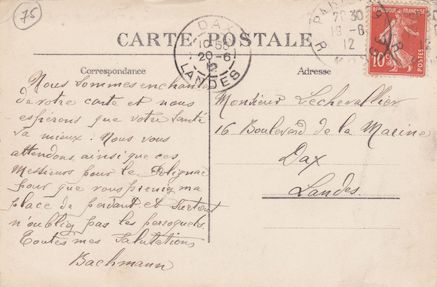 75
CARTE POSTALE
Correspondance
Nous sommes enchantés
de votre carte et nous
espérons que votre santé
va mieux. Nous vous
attendons ainsi que ces
Messieurs pour le Polignac
pour que vous preniez ma
place de perdant et surtout
n'oubliez pas les perroquets.
Toutes mes Salutations
Bachmann
DAX
10 55
20-6
12
LANDES
Adresse
Monsieur Lechevallier
16 Boulevard de la Marine
Dax
Landes
PARIS
30
18-6
12
10